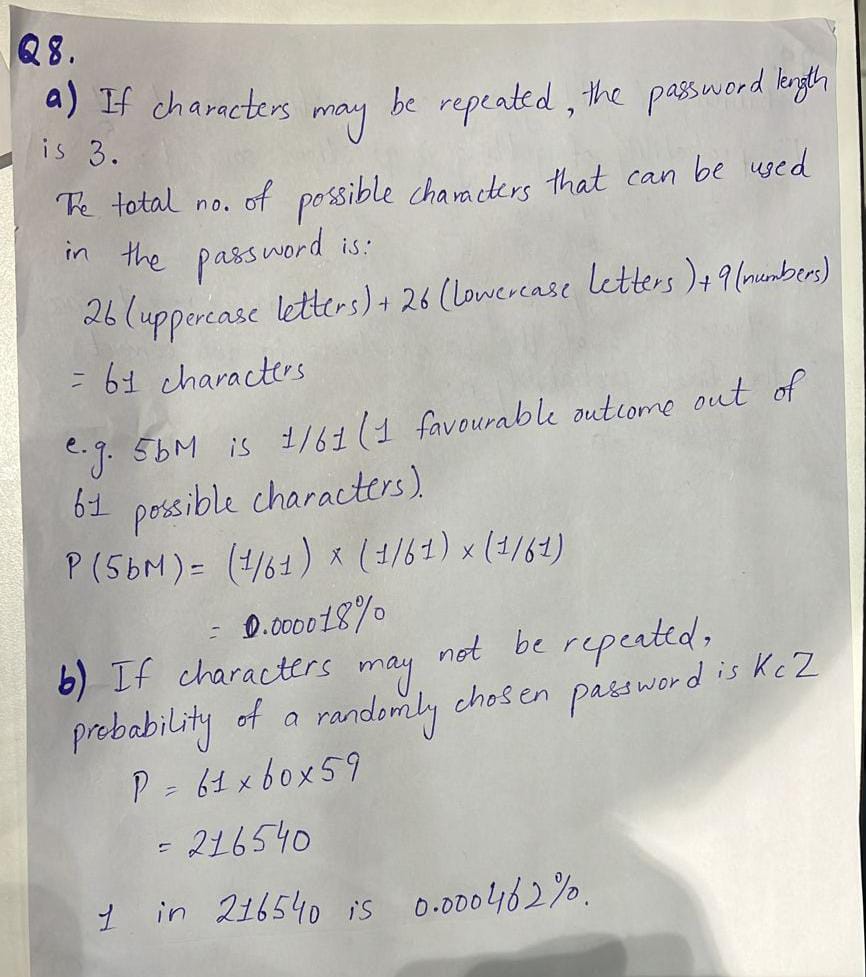 Q8.
a) If characters may be repeated, the password length
is 3.
The total no. of possible characters that can be used
in the password is:
26 (uppercase letters) + 26 (lowercase letters) + 9 (numbers)
= 61 characters
e.g. 5bM is 1/61 (1 favourable outcome out of
61 possible characters).
P(5bM) = (1/61) × (1/61) × (1/61)
= 0.000018%
b) If characters may not be repeated,
probability of a randomly chosen password is KcZ
P = 61 × 60 × 59
= 216540
1 in 216540 is 0.000462%.